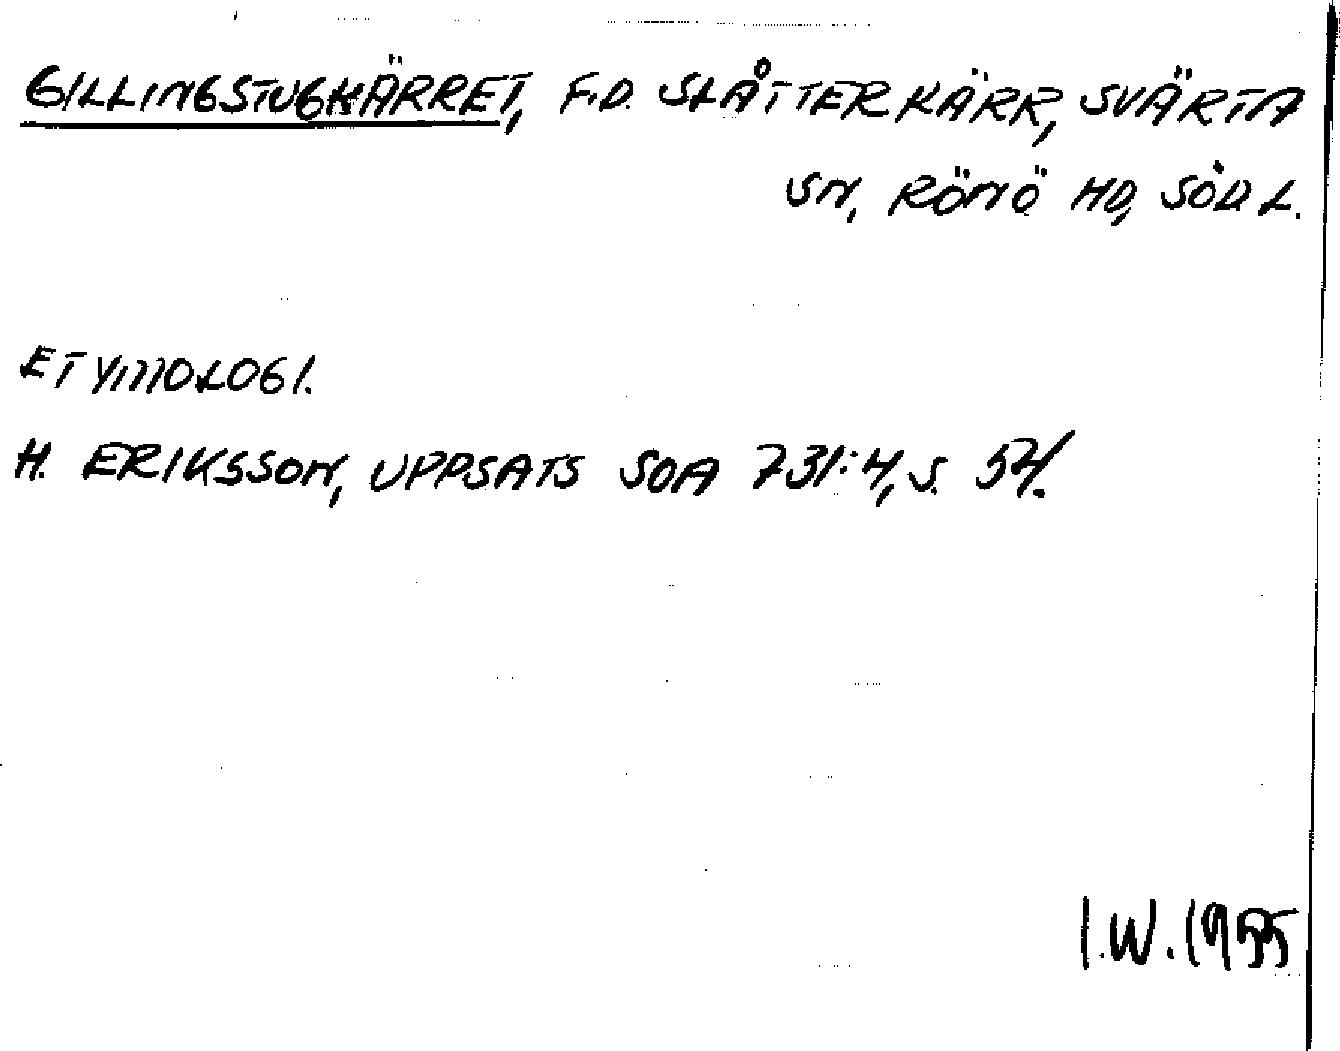 GILLINGSTUGKÄRRET, F.D. SLÅTTERKÄRR, SVÄRTA
SN, RÖNÖ HD, SÖDL.
ETYMOLOGI.
H. ERIKSSON, UPPSATS SOA 731:4, S. 54.
I.W.1955